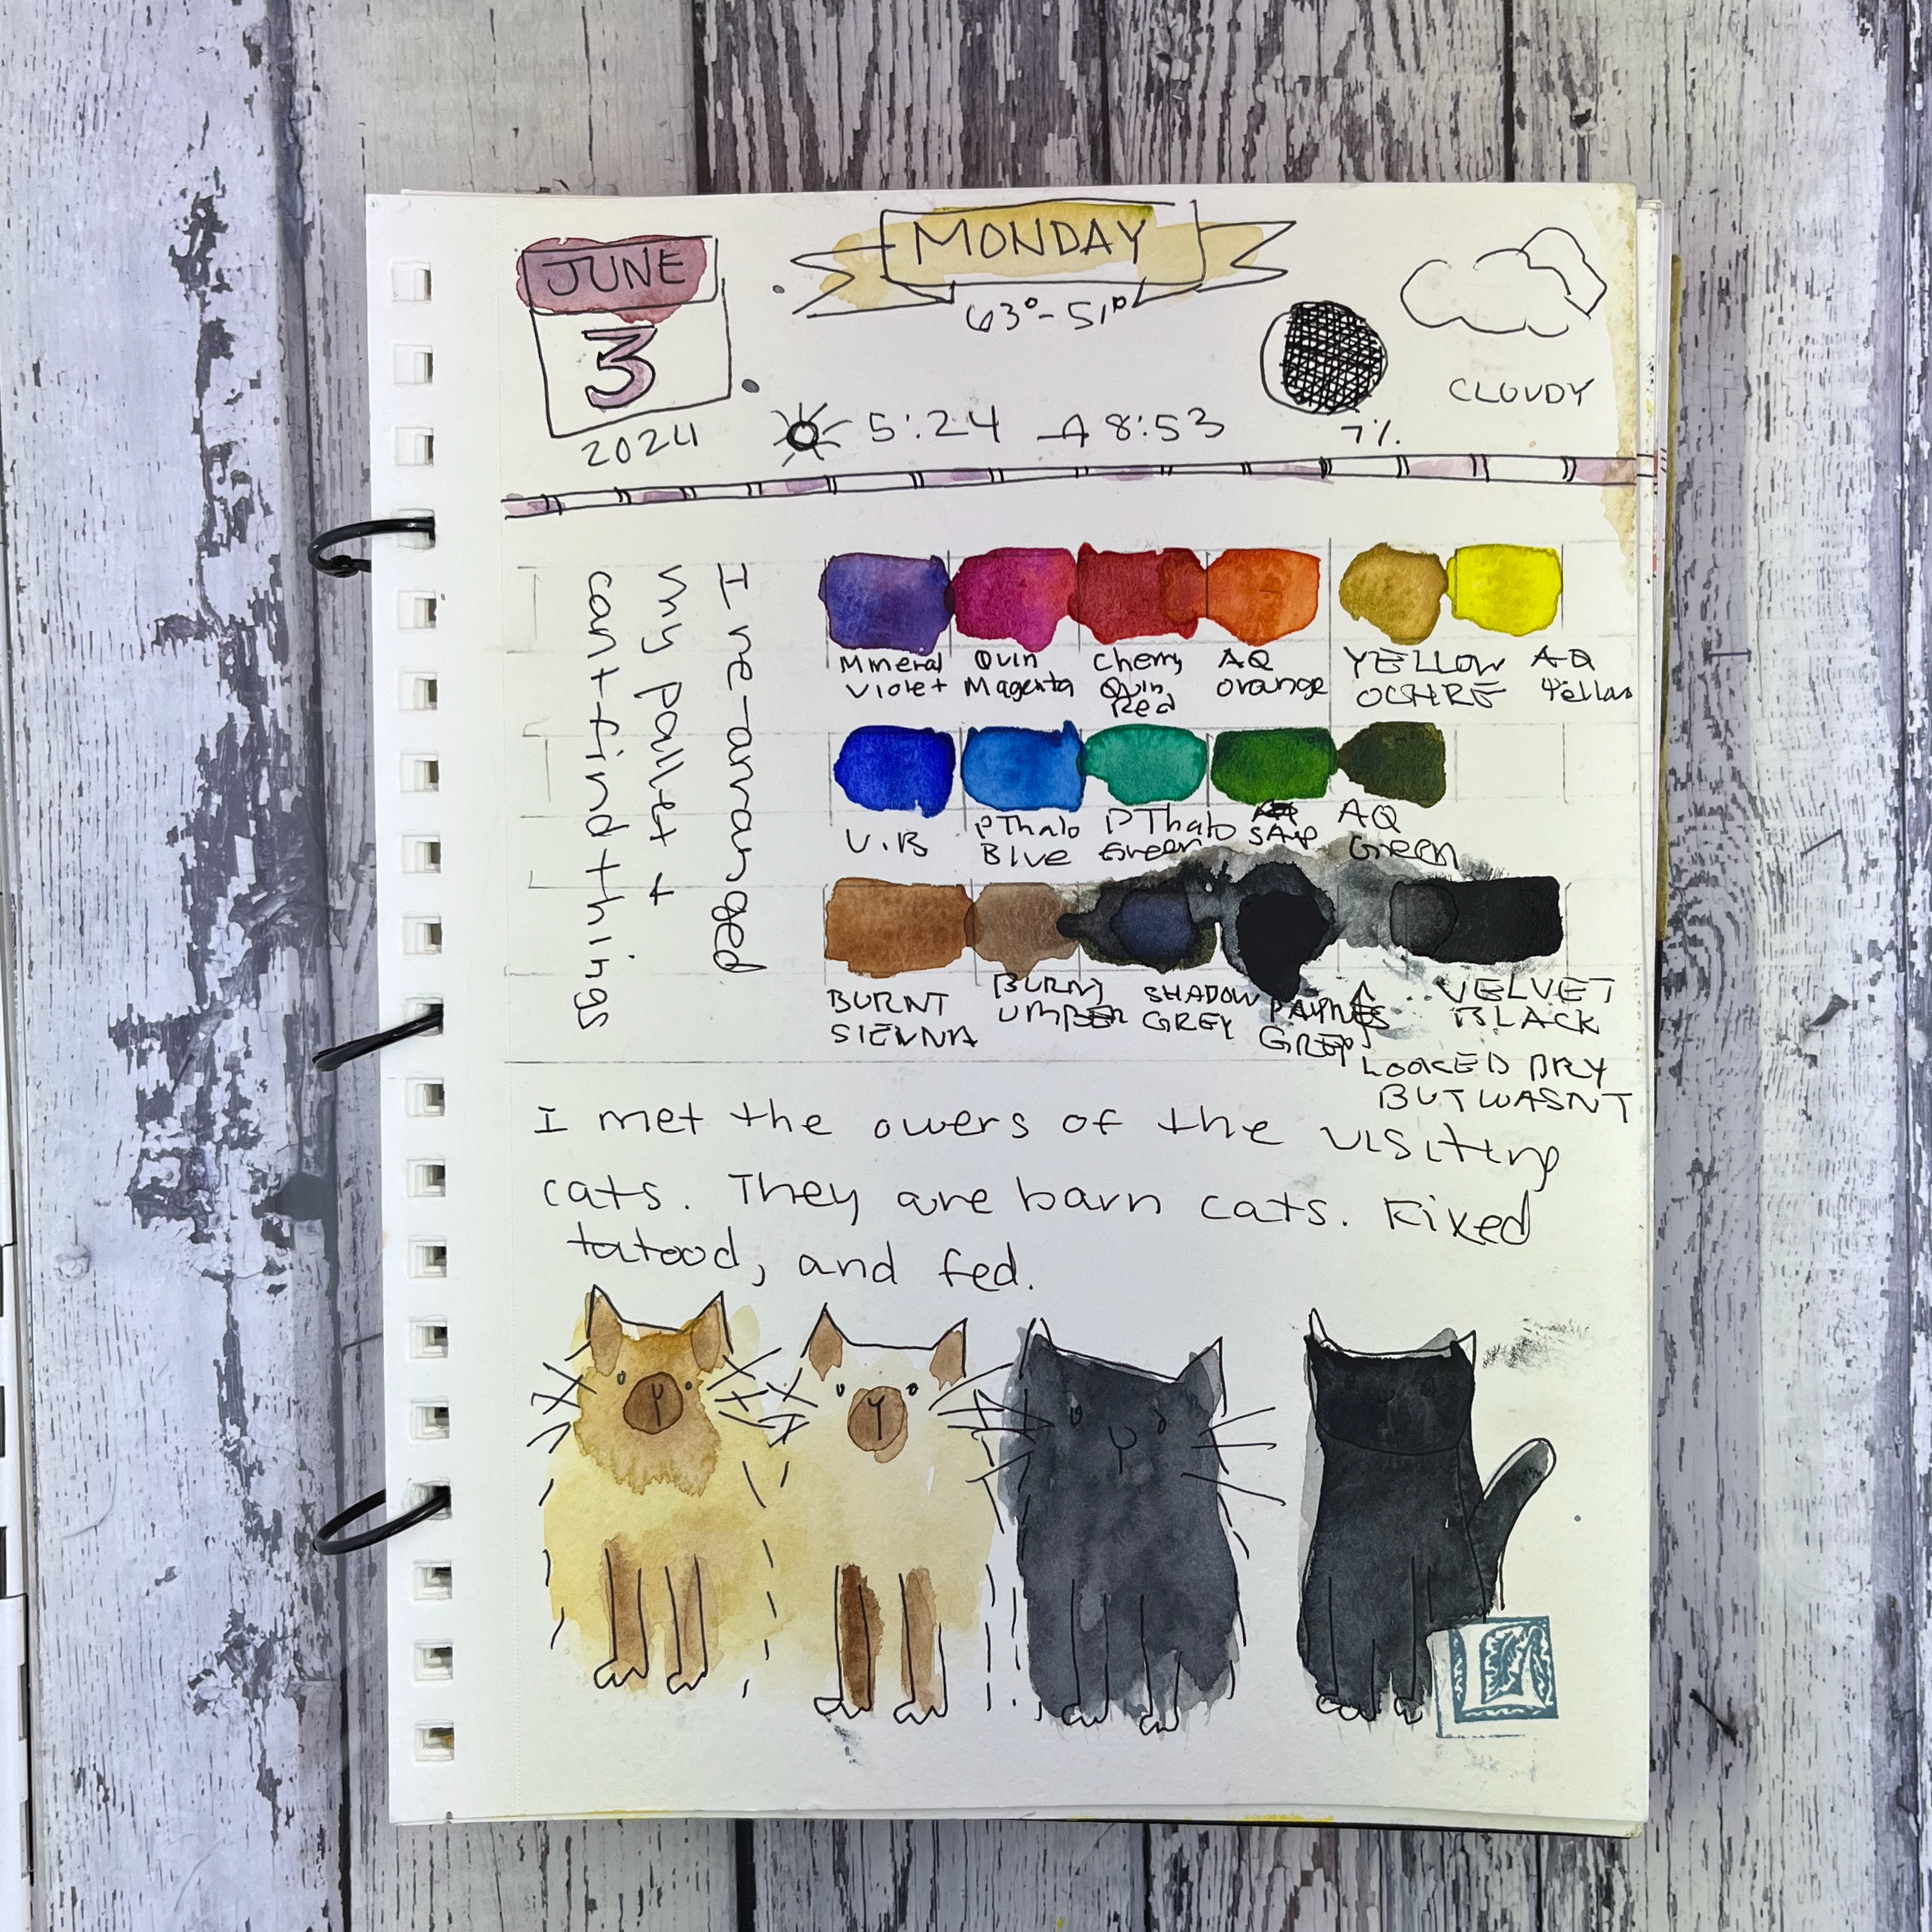 JUNE
3
2024
MONDAY
63°-51°
5:24 8:53
7%.
CLOUDY
I re-arranged
my pallet +
cant find things
Mineral
Violet
Quin
Magenta
Cherry
Quin
Red
AQ
orange
YELLOW
OCHRE
AQ
Yellow
U.B
PThalo
Blue
PThalo
Green
SAP
AQ
Green
BURNT
SIENNA
BURNT
UMBER
SHADOW
GREY
PAYNES
GREY
VELVET
BLACK
LOOKED DRY
BUT WASNT
I met the owers of the visiting
cats. They are barn cats. Fixed
tatood, and fed.